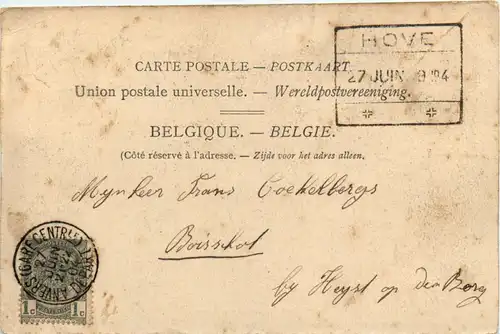 HOVE
27 JUIN 9 04
CARTE POSTALE — POSTKAART
Union postale universelle. — Wereldpostvereeniging.
BELGIQUE. — BELGIE.
(Côté réservé à l'adresse. — Zijde voor het adres alleen.
Mynheer Frans Coekelbergs
Boisschot
by Heyst op den Berg
ANVERS (GARE CENTRALE)
JUIN
1c 1c